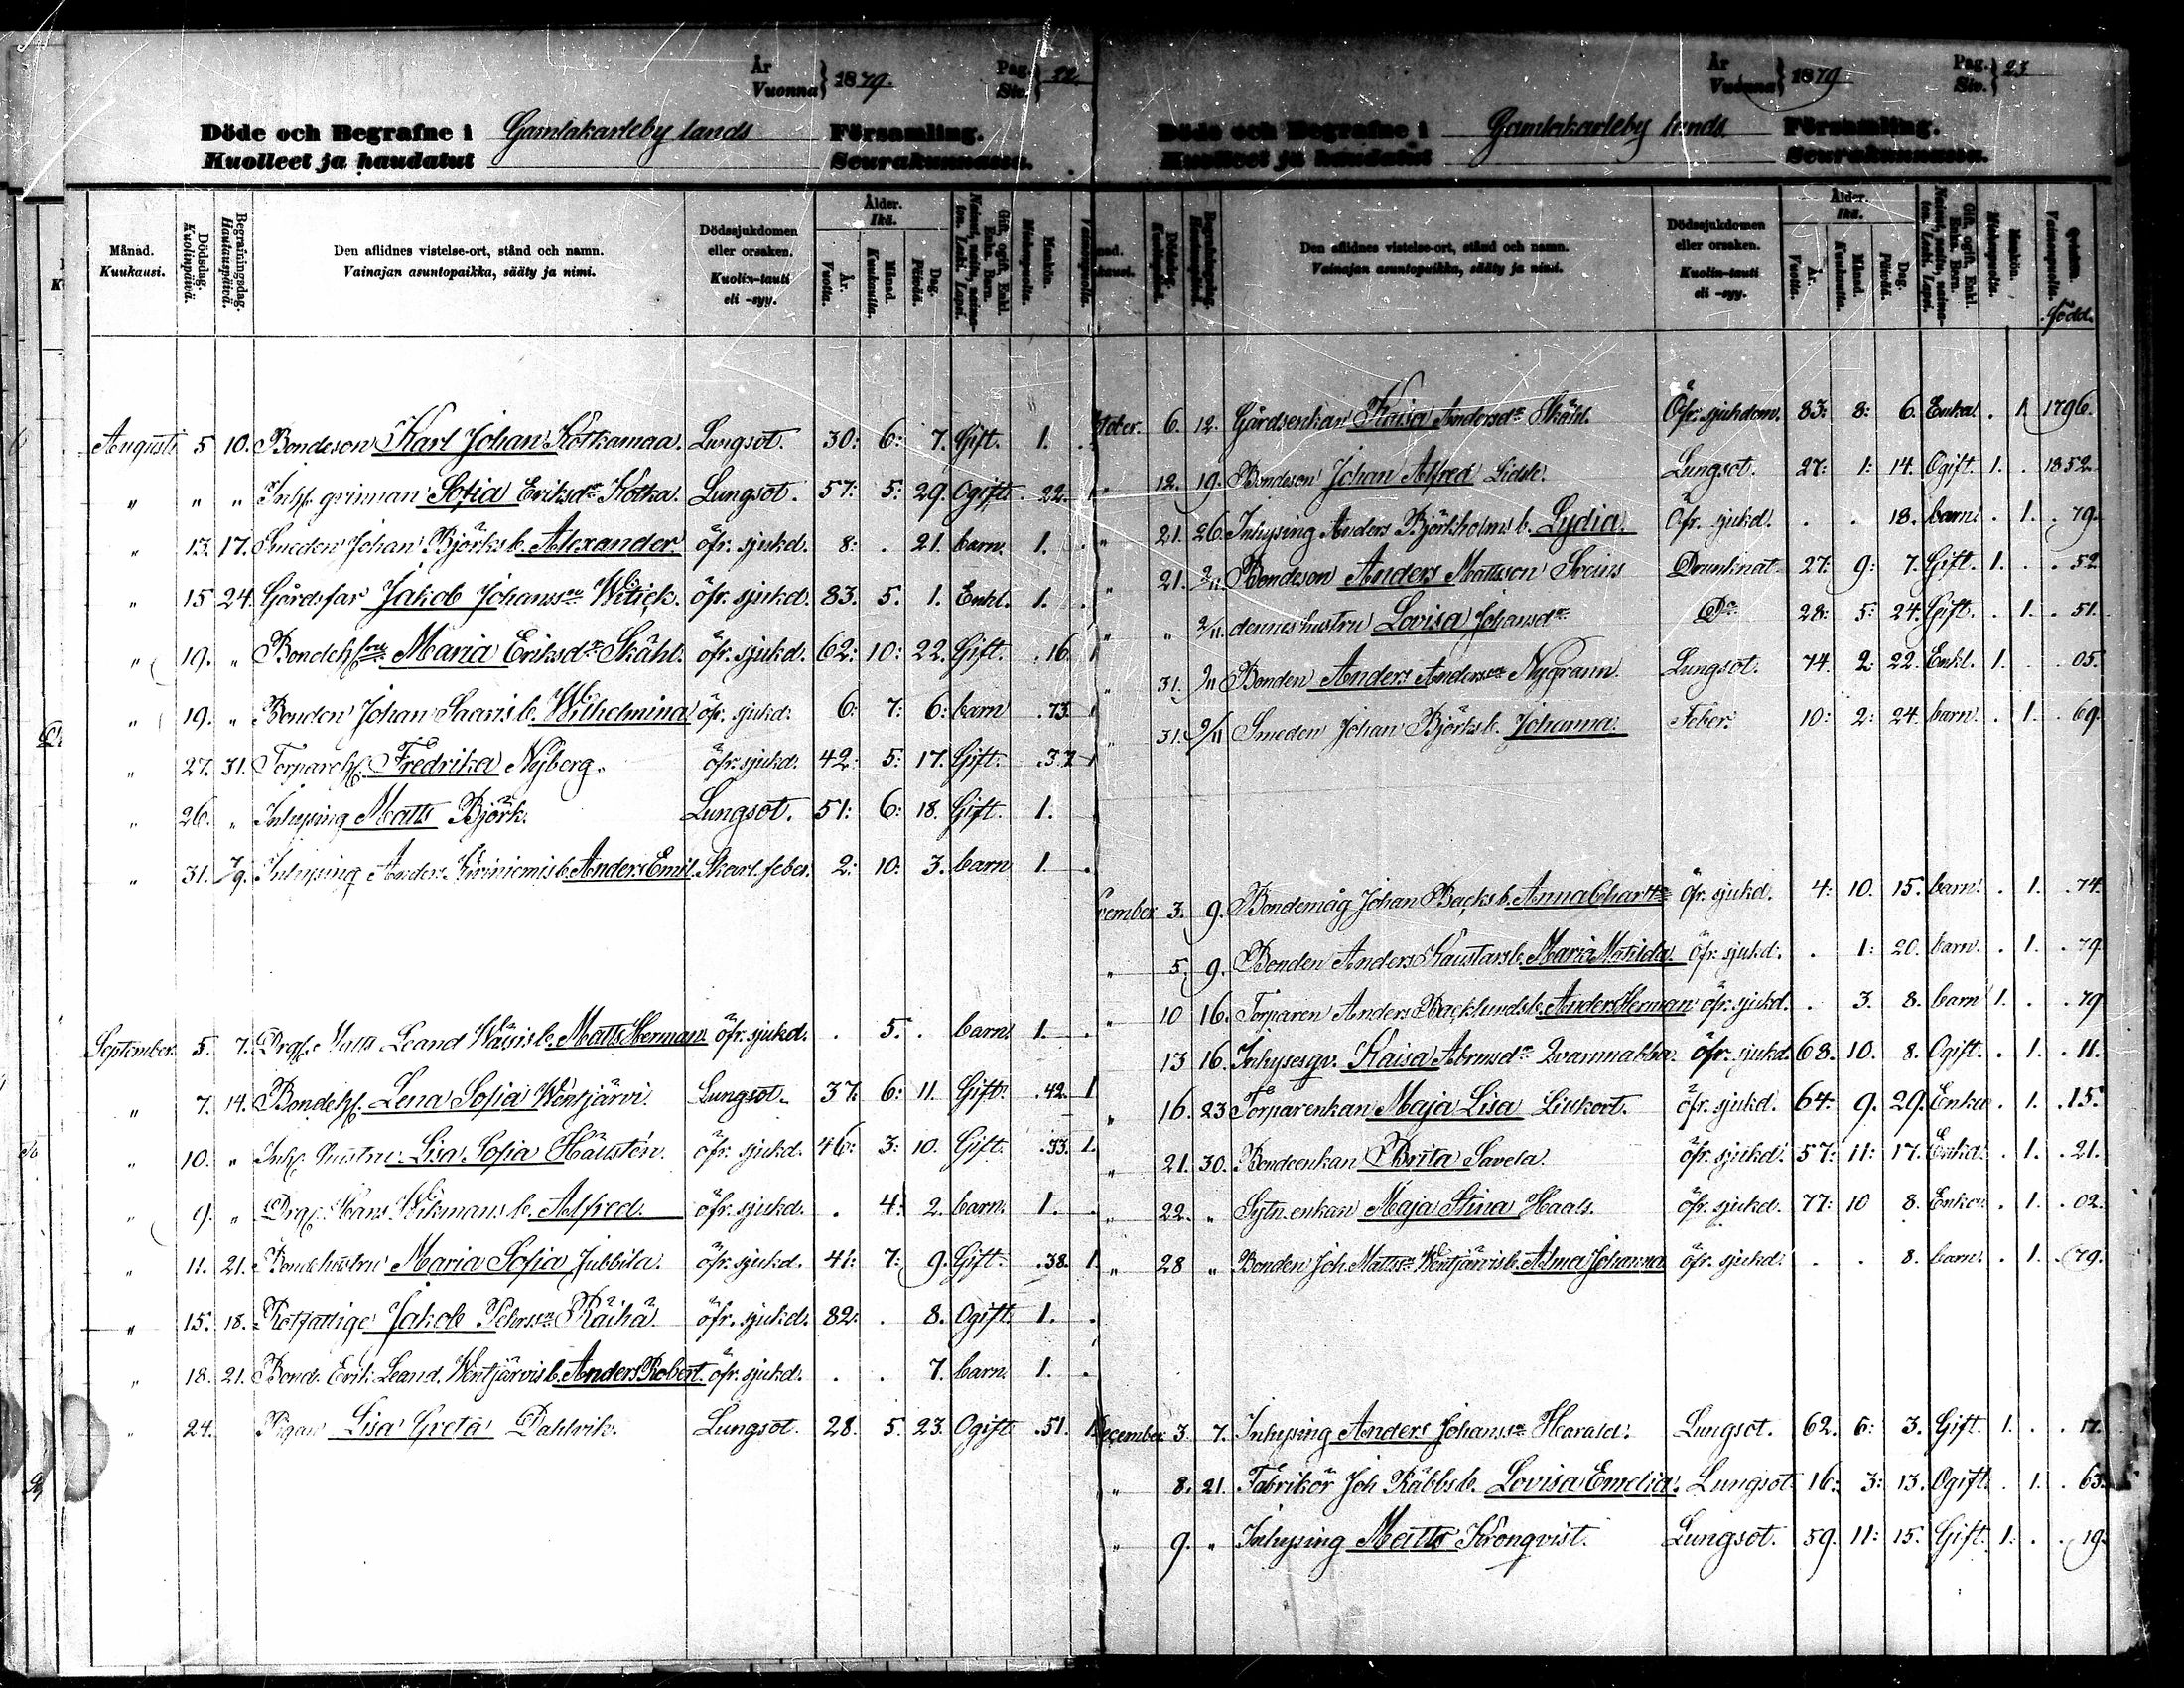 År
Vuonna } 1879. Pag. Siv. } 22.
Döde och Begrafne i Gamlakarleby lands Församling.
Kuolleet ja haudatut Seurakunnassa.
Månad. Kuukausi. Dödsdag. Kuolinpäivä. Begrafningsdag. Hautauspäivä. Den aflidnes vistelse-ort, stånd och namn. Vainajan asuntopaikka, sääty ja nimi. Dödssjukdomen eller orsaken. Kuolin-tauti eli -syy. Ålder. Ikä. År. Vuotta. Månad. Kuukautta. Dag. Päivää. Gift, ogift, Enkl. Enka. Barn. Mankön. Miehenpuolia. Vaimonpuolia.
Augusti 5 10. Bondeson Karl Johan Kotkamaa. Lungsot. 30: 6: 7. Gift. 1. .
" " " Inhs. qvinnan Sofia Eriksdr Kotka. Lungsot. 57: 5: 29. Ogift. 22. 1
" 13. 17. Smeden Johan Björks b. Alexander öfr. sjukd. 8: . 21. barn. 1. .
" 15 24. Gårdsfar Jakob Johansson Witick. öfr. sjukd. 83. 5. 1. Enkl. 1. .
" 19. " Bondehfru Maria Eriksdr Skähl. öfr. sjukd. 62: 10: 22. Gift. .16. 1
" 19. " Bonden Johan Saaris b. Wilhelmina öfr. sjukd. 6: 7: 6: barn .73. "
" 27. 31. Torpareh. Fredrika Nyberg. öfr. sjukd. 42: 5: 17. Gift. .37 1
" 26. " Inhysing Matts Björk. Lungsot. 51: 6: 18. Gift. 1.
" 31. 7/9. Inhysing Anders Kiviniemis b. Anders Emil. Skarl. feber. 2: 10: 3. barn 1. .
September 5. 7. Matts Leand b. Matts Herman öfr. sjukd. . 5. . barn. 1. .
" 7. 14. Bondeh. Lena Sofia Wentjärvi. Lungsot. 37. 6: 11. Gift. .42. 1
" 10. " Inh. hustru Lisa Sofia Hällstén. öfr. sjukd. 46: 3: 10. Gift. .33. 1.
" 9. " Hans Wikmans b. Alfred. öfr. sjukd. . 4: 2. barn. 1. .
" 11. 21. Bondehustru Maria Sofia Jubbila. öfr. sjukd. 41: 7: 9. Gift. .38. 1
" 15. 18. Rotfattige Jakob Pehrsson Räihä. öfr. sjukd. 82: . 8. Ogift 1. .
" 18. 21. Bond. Erik Leand. Wentjärvis b. Anders Robert. öfr. sjukd. . . 7. barn. 1. .
" 24. Pigan Lisa Greta Dahlvik. Lungsot. 28. 5. 23. Ogift .51. 1.
År
Vuonna } 1879 Pag. Siv. } 23
Döde och Begrafne i Gamlakarleby lands Församling.
Kuolleet ja haudatut Seurakunnassa.
Den aflidnes vistelse-ort, stånd och namn. Vainajan asuntopaikka, sääty ja nimi. Dödssjukdomen eller orsaken. Kuolin-tauti eli -syy. Ålder. Ikä. År. Vuotta. Månad. Kuukautta. Dag. Päivää. Gift, ogift, Enkl. Enka. Barn. Mankön. Miehenpuolia. Qvinkön. Vaimonpuolia. Född.
6. 12. Gårdsenkan Kaisa Andersdr Skähl. Öfr. sjukdom. 83: 8: 6. Enka. . 1. 1796.
" 12. 19. Bondeson Johan Alfred Lungsot. 27: 1: 14. Ogift. 1. . 1852.
" 21. 26. Inhysing Anders Björkholms b. Lydia. Öfr. sjukd. . . 18. barn. . 1. . 79.
" 21. 2/11. Bondeson Anders Mattsson Sveins Drunknat. 27: 9: 7. Gift. 1. . . 52.
" " 2/11. dennes hustru Lovisa Johansdr Do 28: 5: 24. Gift. . 1. . 51.
" 31. /11 Bonden Anders Andersson Nygrann. Lungsot. 74. 2: 22. Enkl. 1. . 05.
" 31. 2/11 Smeden Johan Björks b. Johanna. Feber. 10: 2: 24. barn. . 1. . 69.
vember 3. 9. Bondemåg Johan Backs b. Anna Charltta öfr. sjukd. 4: 10. 15. barn. . 1. . 74.
" 5. 9. Bonden Anders Kaustars b. Maria Matilda. öfr. sjukd. . 1: 20. barn. . 1. . 79
" 10 16. Torparen Anders Backlunds b. Anders Herman öfr. sjukd. . 3. 8. barn 1. . . 79
13 16. Inhysesqv. Kaisa Abrmsdr Qvarnnabba. öfr. sjukd. 68. 10. 8. Ogift. . 1. . 11.
" 16. 23 Torparenkan Maja Lisa Liukort. öfr. sjukd. 64. 9. 29. Enka . 1. . 15.
" 21. 30. Bondeenkan Brita Savela. öfr. sjukd. 57: 11: 17. Enka. . 1. . 21.
" 22. " Sytn. enkan Maja Stina Haals. öfr. sjukd. 77: 10 8. Enka. . 1. . 02.
" 28 " Bonden Joh. Mattsson Wentjärvis b. Alma Johanna öfr. sjukd. . . 8. barn. . 1. . 79.
December 3. 7. Inhysing Anders Johansson Harald. Lungsot. 62. 6: 3. Gift. 1. . . 17.
" 8. 21. Fabrikör Joh Räbbs b. Lovisa Emelia. Lungsot 16: 3: 13. Ogift. . 1. . 63.
" 9. " Inhysing Matts Kronqvist. Lungsot. 59. 11: 15. Gift. 1. . . 19.